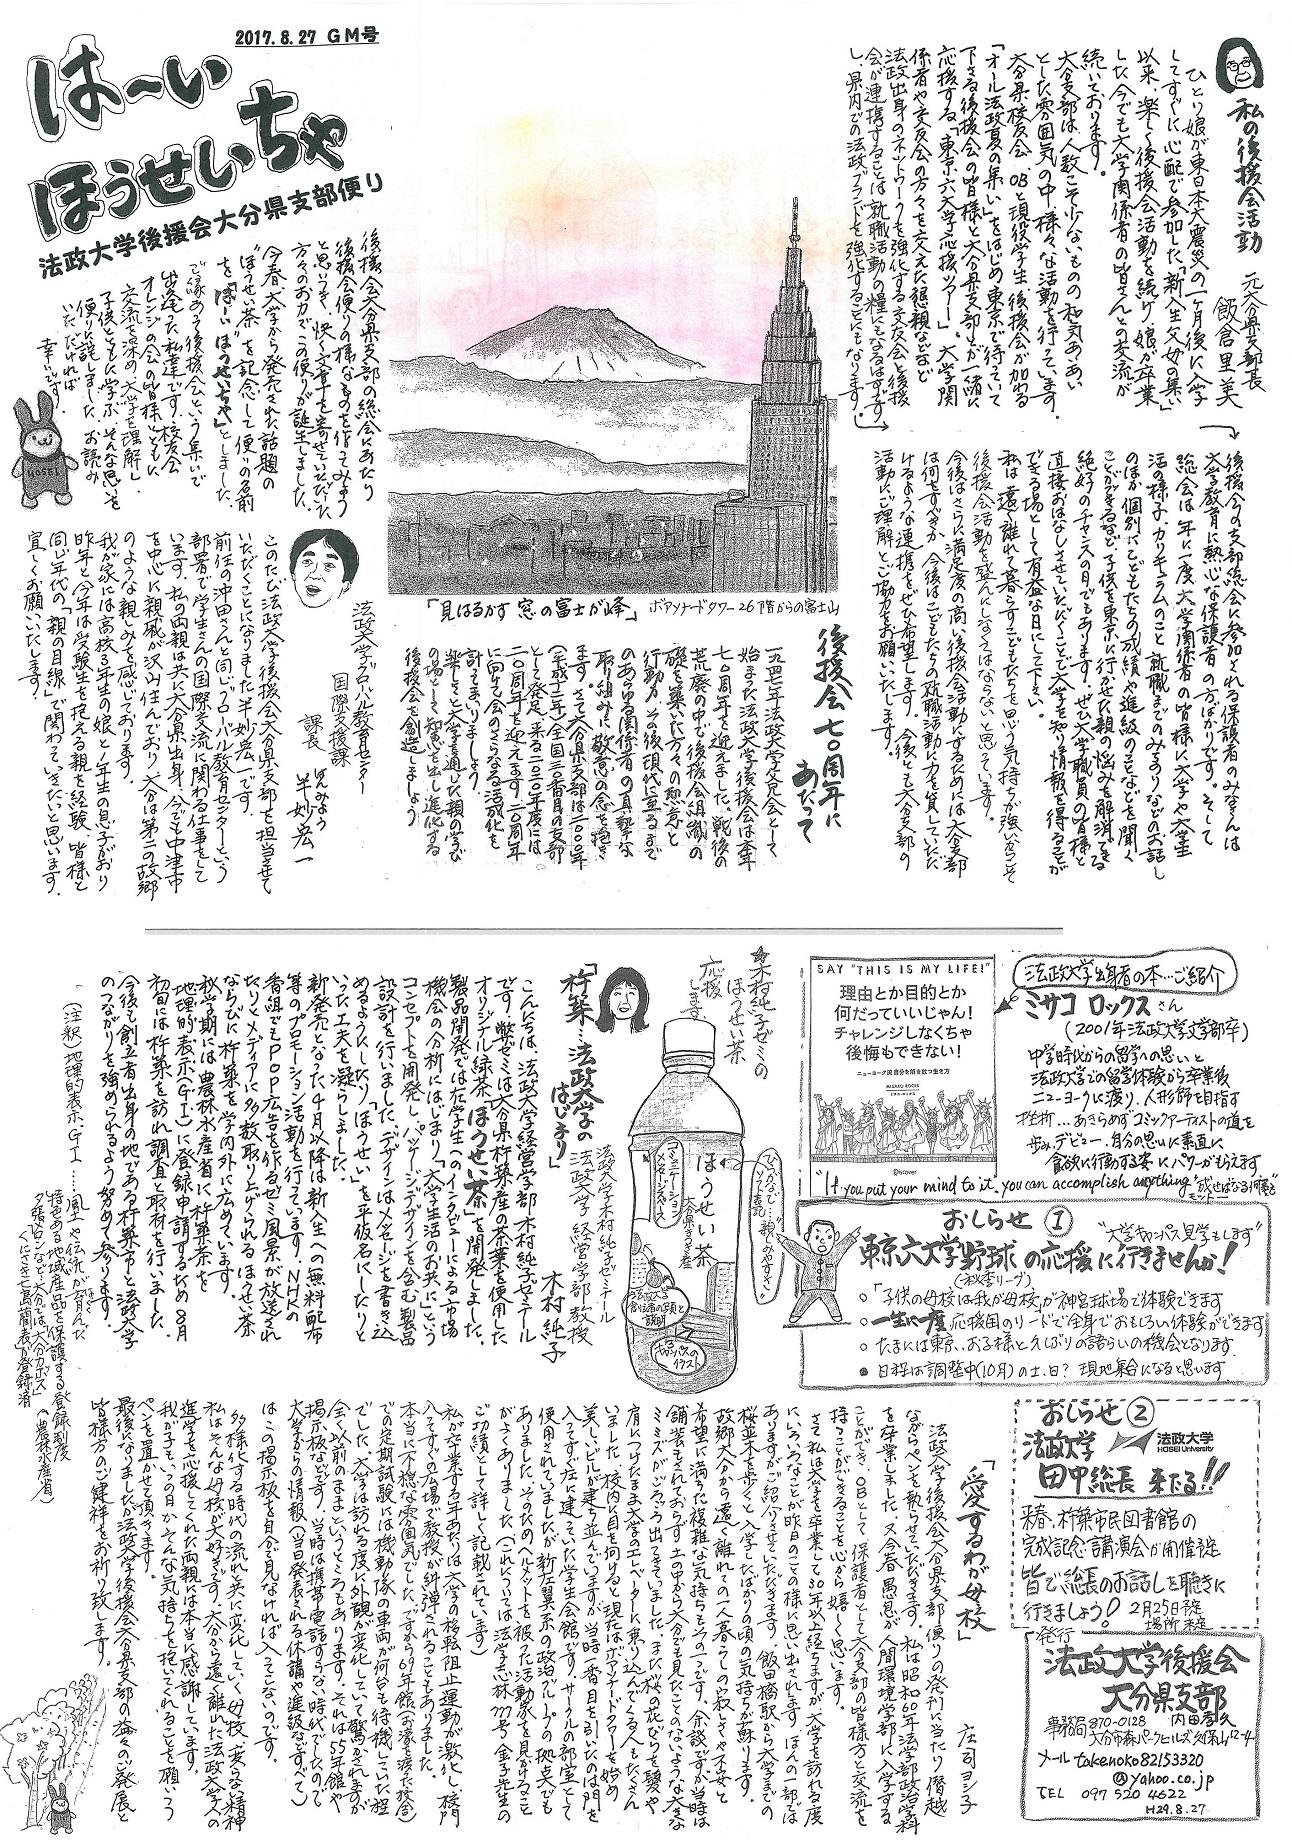 2017.8.27 GM号
は〜い
ほうせいちゃ
法政大学後援会大分県支部便り
後援会大分県支部の総会にあたり
後援会便りの様なものを作ってみよう
と思いつき、快く文章を寄せていただいた
方々のお力でこの便りが誕生しました。
今春、大学から発売された話題の
"ほうせい茶"を記念して便りの名前
を「は〜いほうせいちゃ」としました。
ご縁あって後援会という集いで
出逢った私達です。校友会
オレンジの会の皆様ともに
交流を深め、大学を理解し
子供とともに学ぶ、そんな思いを
便りに託しました。お読み
いただければ
幸いです。
HOSEI
私の後援会活動
元大分県支部長
飯倉里美
ひとり娘が東日本大震災の一ヶ月後に入学
してすぐに心配で参加した「新入生父母の集い」
以来、楽しく後援会活動を続け、娘が卒業
した今でも大学関係者の皆さんとの交流が
続いております。
大分支部は、人数こそ少ないものの和気あいあい
とした雰囲気の中、様々な活動を行っています。
大分県校友会・OBと現役学生、後援会が加わる
「オール法政夏の集い」をはじめ、東京で待っていて
下さる後援会の皆様と大分県支部生が一緒に
応援する「東京六大学応援ツアー」。大学関
係者や校友会の方々を交えた懇親など
法政出身のネットワークを強化する校友会と後援
会が連携することは就職活動の糧にもなるはずです
し、県内での法政ブランドを強化することにもなります。
後援会の支部総会に参加される保護者のみなさんは
大学教育に熱心な保護者の方ばかりです。そして
総会は年に一度、大学関係者の皆様に大学や大学生
活の様子、カリキュラムのこと、就職までのみちのりなどのお話し
のほか個別にこどもたちの成績や進級のことなどを聞く
ことができるなど、子供を東京に行かせた親の悩みを解消できる
絶好のチャンスの日でもあります。ぜひ大学職員の皆様と
直接おはなしさせていただくことで大学を知り情報を得ることが
できる場として有益な日にして下さい。
私は、遠く離れて暮らすこどもたちを思う気持ちが強いからこそ
後援会活動を盛んにしなくてはならないと思っています。
今後はさらに満足度の高い後援会活動にするためには大分支部
は何をすべきか、今後はこどもたちの就職活動に力を貸していただ
けるような連携をぜひ希望します。今後とも大分支部の
活動にご理解とご協力をお願いいたします。
「見はるかす 窓の富士が峰」 ボアソナードタワー26階からの富士山
法政大学グローバル教育センター
国際支援課
課長
はんみょう
半妙宏一
このたび法政大学後援会大分県支部を担当させて
いただくことになりました半妙宏一です。
前任の沖田さんと同じグローバル教育センターという
部署で学生さんの国際交流に関わる仕事をして
います。私の両親は共に大分県出身、今でも中津市
を中心に親戚が沢山住んでおり、大分は第二の故郷
のような親しみを感じております。
我が家には高校3年生の娘と1年生の息子がおり
昨年と今年は受験生を抱える親を経験、皆様と
同じ年代の「親の目線」で関わっていきたいと思います。
宜しくお願いいたします。
後援会七〇周年に
あたって
一九四七年法政大学父兄会として
始まった法政大学後援会は本年
七〇周年を迎えました。戦後の
荒廃の中で後援会組織の
礎を築いた方々の熱意と
行動力、その後現代に至るまで
のあらゆる関係者の真摯な
取り組みに敬意の念を抱き
ます。さて大分県支部は二〇〇〇年
（平成十二年）全国三〇番目の支部
として発足、来る二〇二〇年度には
二〇周年を迎えます。二〇周年
に向けて会のさらなる活成化を
計ってまいりましょう。
楽しさと大学を通じた親の学び
の場として知恵を出し進化する
後援会を創造しましょう
「杵築…法政大学の
はじまり」
法政大学木村純子ゼミナール
法政大学 経営学部 教授
木村純子
こんにちは。法政大学経営学部木村純子ゼミナール
です。弊ゼミは大分県杵築産の茶葉を使用した
オリジナル緑茶「ほうせい茶」を開発しました。
製品開発では在学生へのインタビューによる市場
機会の分析にはじまり、「大学生活のお共に」という
コンセプトを開発し、パッケージ・デザインを含む製品
設計を行いました。デザインはメッセージを書き込
めるようにしたり、「ほうせい」を平仮名にしたりと
いった工夫を凝らしました。
新発売となった4月以降は新入生への無料配布
等のプロモーション活動を行っています。NHKの
番組でもPOP広告を作るゼミ風景が放送され
たりとメディアに多数取り上げられるほうせい茶
ならびに杵築を学内外に広めています。
秋学期には農林水産省に杵築茶を
地理的表示（GI）に登録申請するため8月
初旬には杵築を訪れ調査と取材を行いました。
今後も創立者出身の地である杵築市と法政大学
のつながりを強められるよう努めて参ります。
（注釈）地理的表示、GI……風土や伝統が育んだ
特色ある地域産品を保護する登録制度
夕張メロンなど・大分は「大分かぼす」
「くにさき七島藺表」が登録済
（農林水産省）
☆木村純子ゼミの
ほうせい茶
応援
します。
コミュニケーション
メッセージスペース
ほうせい茶
大分県きつき産
キャンパスの
イラスト
法政大学出身者の本…ご紹介
ミサコ ロックス さん
（2001年 法政大学文学部卒）
中学時代からの留学への思いと
法政大学での留学体験から卒業後
ニューヨークに渡り、人形師を目指す
挫折…あきらめずコミックアーティストの道を
歩みデビュー、自分の思いに素直に
貪欲に行動する姿にパワーがもらえます
SAY "THIS IS MY LIFE!"
理由とか目的とか
何だっていいじゃん!
チャレンジしなくちゃ
後悔もできない!
ニューヨーク流自分を解き放つ生き方
MISAKO ROCKS!
Discover
"If you put your mind to it, you can accomplish anything"
おしらせ ①
"大学キャンパス見学もします"
東京六大学野球の応援に行きませんか!
（秋季リーグ）
○「子供の母校は我が母校」が神宮球場で体験できます
○ 一生に一度 応援団のリードで全身でおもしろい体験ができます
○ たまには東京、お子様と久しぶりの語らいの機会となります。
● 日程は調整中（10月）の土、日? 現地集合になると思います
おしらせ ②
法政大学
HOSEI University
法政大学
田中総長 来たる!!
来春、杵築市民図書館の
完成記念講演会が開催予定
皆で総長のお話しを聴きに
行きましょう! 2月25日予定
場所未定
発行
法政大学後援会
大分県支部
事務局 870-0128 内田孝久
大分市森パークヒルズ久保山12-4
メール takenoko82153320
@yahoo.co.jp
TEL 097 520 4622
H29.8.27
「愛するわが母校」
庄司ヨシ子
法政大学後援会大分県支部便りの発刊に当たり、僭越
ながらペンを執らせていただきます。私は昭和60年法学部政治学科
を卒業しました。又今春、愚息が人間環境学部に入学する
ことができ、OBとして、保護者として大分支部の皆様方と交流を
持つことができることを心から嬉しく思います。
さて私は大学を卒業して30年以上経ちますが、大学を訪れる度
にいろいろなことが昨日のことの様に思い出されます。ほんの一部では
ありますがご紹介させていただきます。飯田橋駅から大学までの
桜並木を歩くと、入学したばかりの頃の気持ちが蘇ります。
故郷大分から遠く離れての一人暮らしの寂しさや不安と
希望に満ちた複雑な気持ちもその一つです。余談ですが当時は
舗装もされておらず、土の中から大分でも見たことのないような大きな
ミミズがごろごろ出てきていました。また桜の花びらを髪や
肩につけたまま大学のエレベーターに乗り込んでくる人もたくさん
いました。校内に目を向けると、現在はボアソナードタワーを始め
美しいビルが建ち並んでいますが、当時一番目を引いたのは門を
入ってすぐ左に建っていた学生会館です。サークルの部室として
使用されていましたが、新左翼系の政治グループの拠点でも
ありました。そのためヘルメットを被った活動家を見かけること
がよくありました。（これについては法学志林777号金子先生の
ご功績として詳しく記載されています）
私が卒業する年あたりは大学の移転阻止運動が激化し、校門
入ってすぐの広場で教授が糾弾されることもありました。
本当に不穏な雰囲気でした。ですから69年館（お濠を渡った校舎）
での定期試験には機動隊の車両が何台も待機していた程
でした。大学は訪れる度に外観が変化していて驚かされますが
全く以前のままというところもあります。それは55年館や
掲示板などです。当時は携帯電話すらない時代でしたので
大学からの情報（当日発表される休講や進級などすべて）
はこの掲示板を自分で見なければ入ってこないのです。
多様化する時代の流れと共に変化していく母校、変らない精神
私はそんな母校が大好きです。大分から遠く離れた法政大学への
進学を後押ししてくれた両親には本当に感謝しています。
我が子も、いつの日かそんな気持ちを抱いてくれることを願いつつ
ペンを置かせて頂きます。
最後になりましたが法政大学後援会大分県支部の益々のご発展と
皆様方のご健祥をお祈り致します。